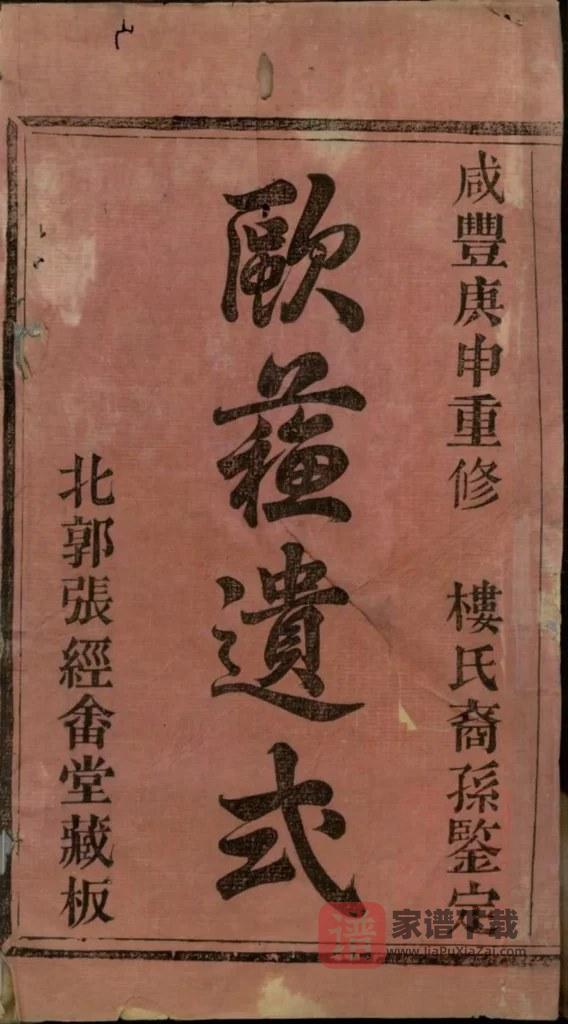 咸豐庚申重修 樓氏裔孫鑒定
歐蘇遺式
北郭張經畬堂藏板
谱
家谱下载
www.jiaPuXiaZai.com